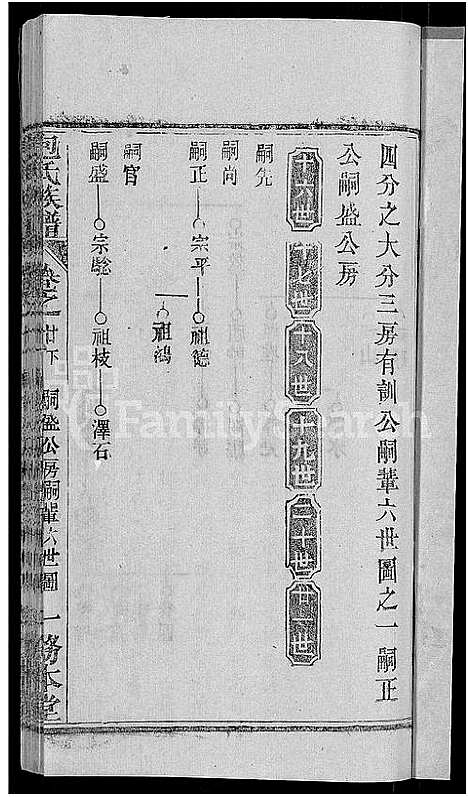 四分之大分三房有訓公嗣輩六世圖之一 嗣正
公嗣盛公房
十六世 十七世 十八世 十九世 二十世 廿一世
嗣先
嗣尚
嗣正——○宗平——○祖德
——○祖鴻
嗣官
嗣盛——○宗——○祖枝——○澤石
包氏族譜 卷之廿下 嗣盛公房嗣輩六世圖 一 務本堂
FamilySearch